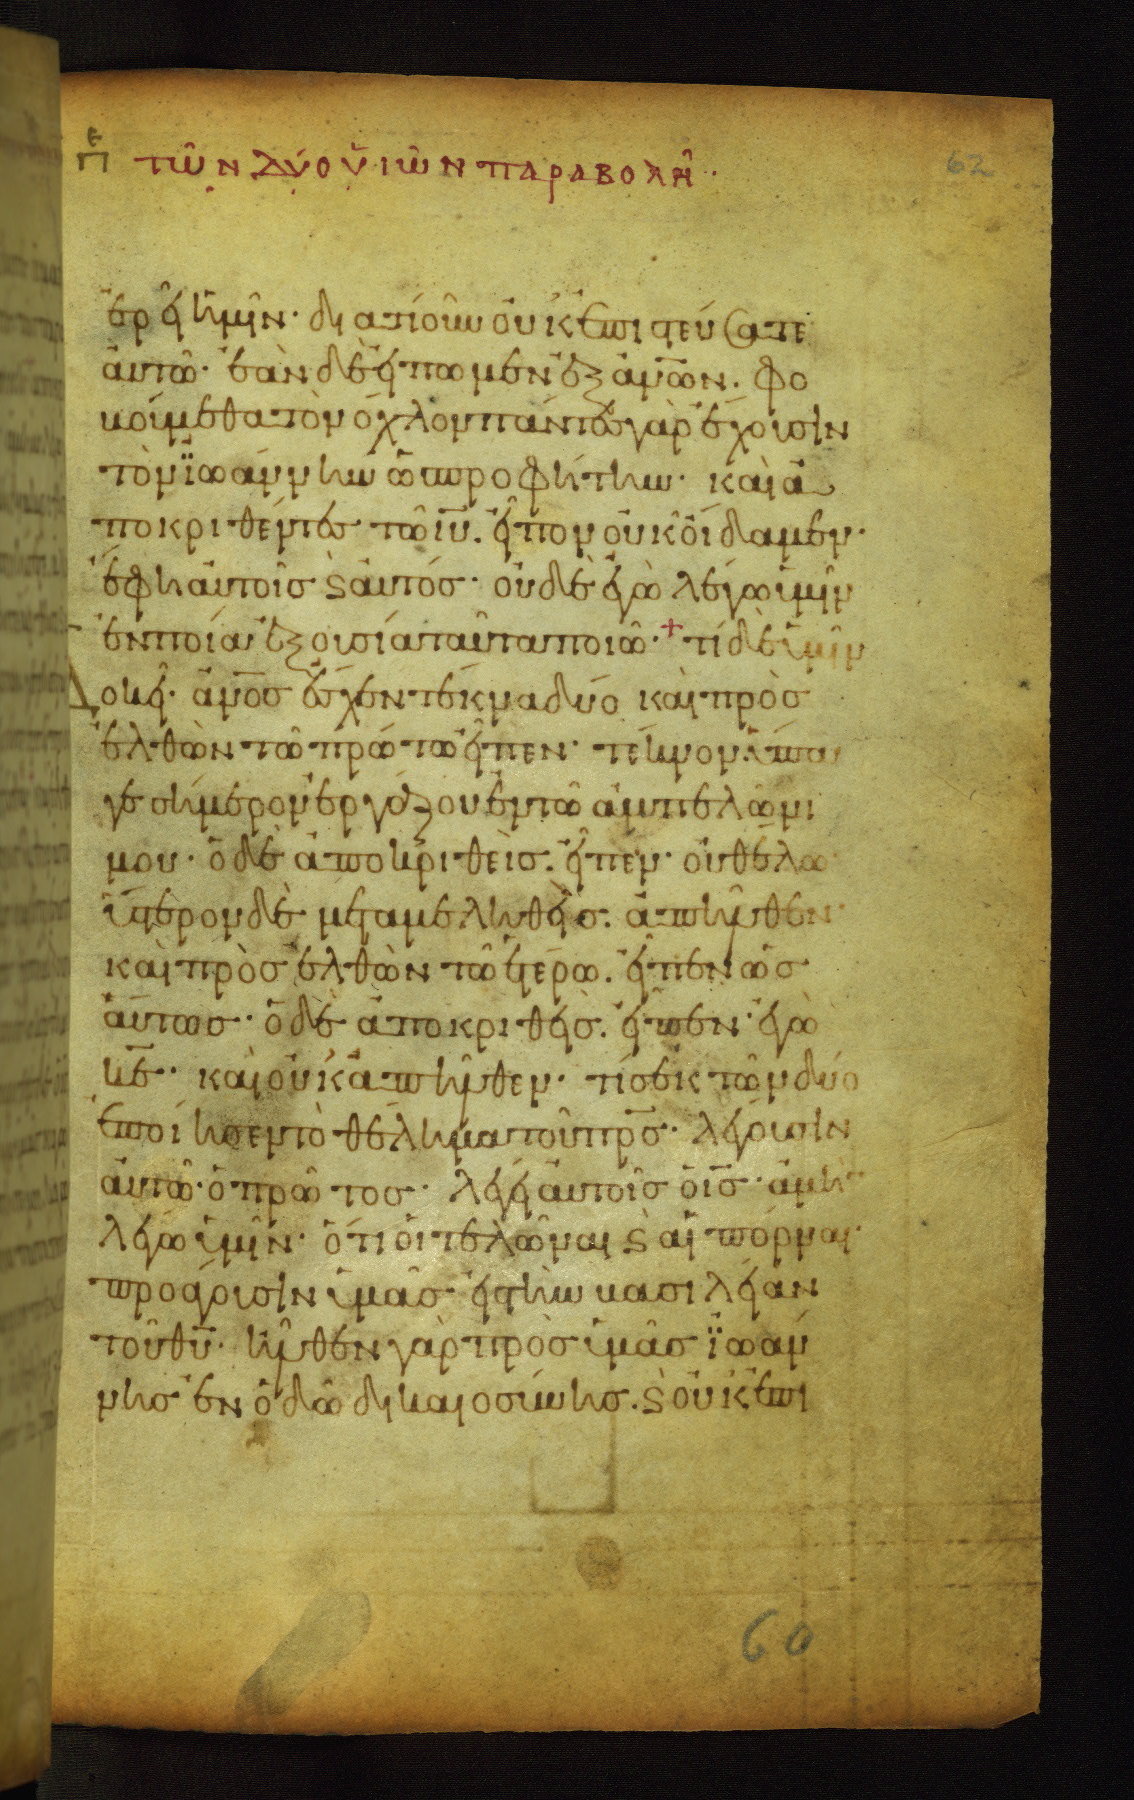 πε τῶν δύο ὑιῶν παραβολή· 62
ἐρεῖ ἡμῖν· διατί οὖν οὐκ ἐπιστεύσατε
αὐτῶ· ἐὰν δὲ εἴπωμεν ἐξ ἀν̅ων. φο
βούμεθα τὸν ὄχλον πάντες γὰρ ἔχουσιν
τὸν ϊωάννην ὡς προφήτην· καὶ ἀ
ποκριθέντες τῶ ιυ̅. εἶπον οὐκ οἴδαμεν·
ἔφη αὐτοῖς ϗ αὐτός· οὐδὲ ἐγὼ λέγω ὑμῖν
ἐν ποία ἐξουσία ταῦτα ποιῶ· + τί δὲ ὑμῖν
Δοκεῖ· ἀν̅ος εἶχεν τέκνα δύο καὶ προσ
ελθὼν τῶ πρώτω εἶπεν· τέκνον ὕπα
γε σήμερον ἐργάζου ἐν τῶ ἀμπελῶνι
μου· ὁ δὲ ἀποκριθεὶς. εἶπεν· οὐ θέλω
ὕστερον δὲ μεταμεληθεὶς. ἀπῆλθεν·
καὶ προσελθὼν τῶ ἑτέρω. εἶπεν ὡσ
αύτως· ὁ δὲ ἀποκριθεὶς. εἶπεν· ἐγὼ
κε̅· καὶ οὐκ ἀπῆλθεν· τίς ἐκ τῶν δύο
ἐποίησεν τὸ θέλημα τοῦ πρ̅ς· λέγουσιν
αὐτῶ· ὁ πρῶτος· λέγει αὐτοῖς ὁ ις̅· ἀμὴν
λέγω ὑμῖν· ὅτι οἱ τελῶναι ϗ αἱ πόρναι·
προάγουσιν ὑμᾶς εἰς τὴν βασιλείαν
τοῦ θυ̅· ἦλθεν γὰρ πρὸς ὑμᾶς ϊωάν
νης ἐν ὁδῶ δικαιοσύνης. ϗ οὐκ ἐπι
60